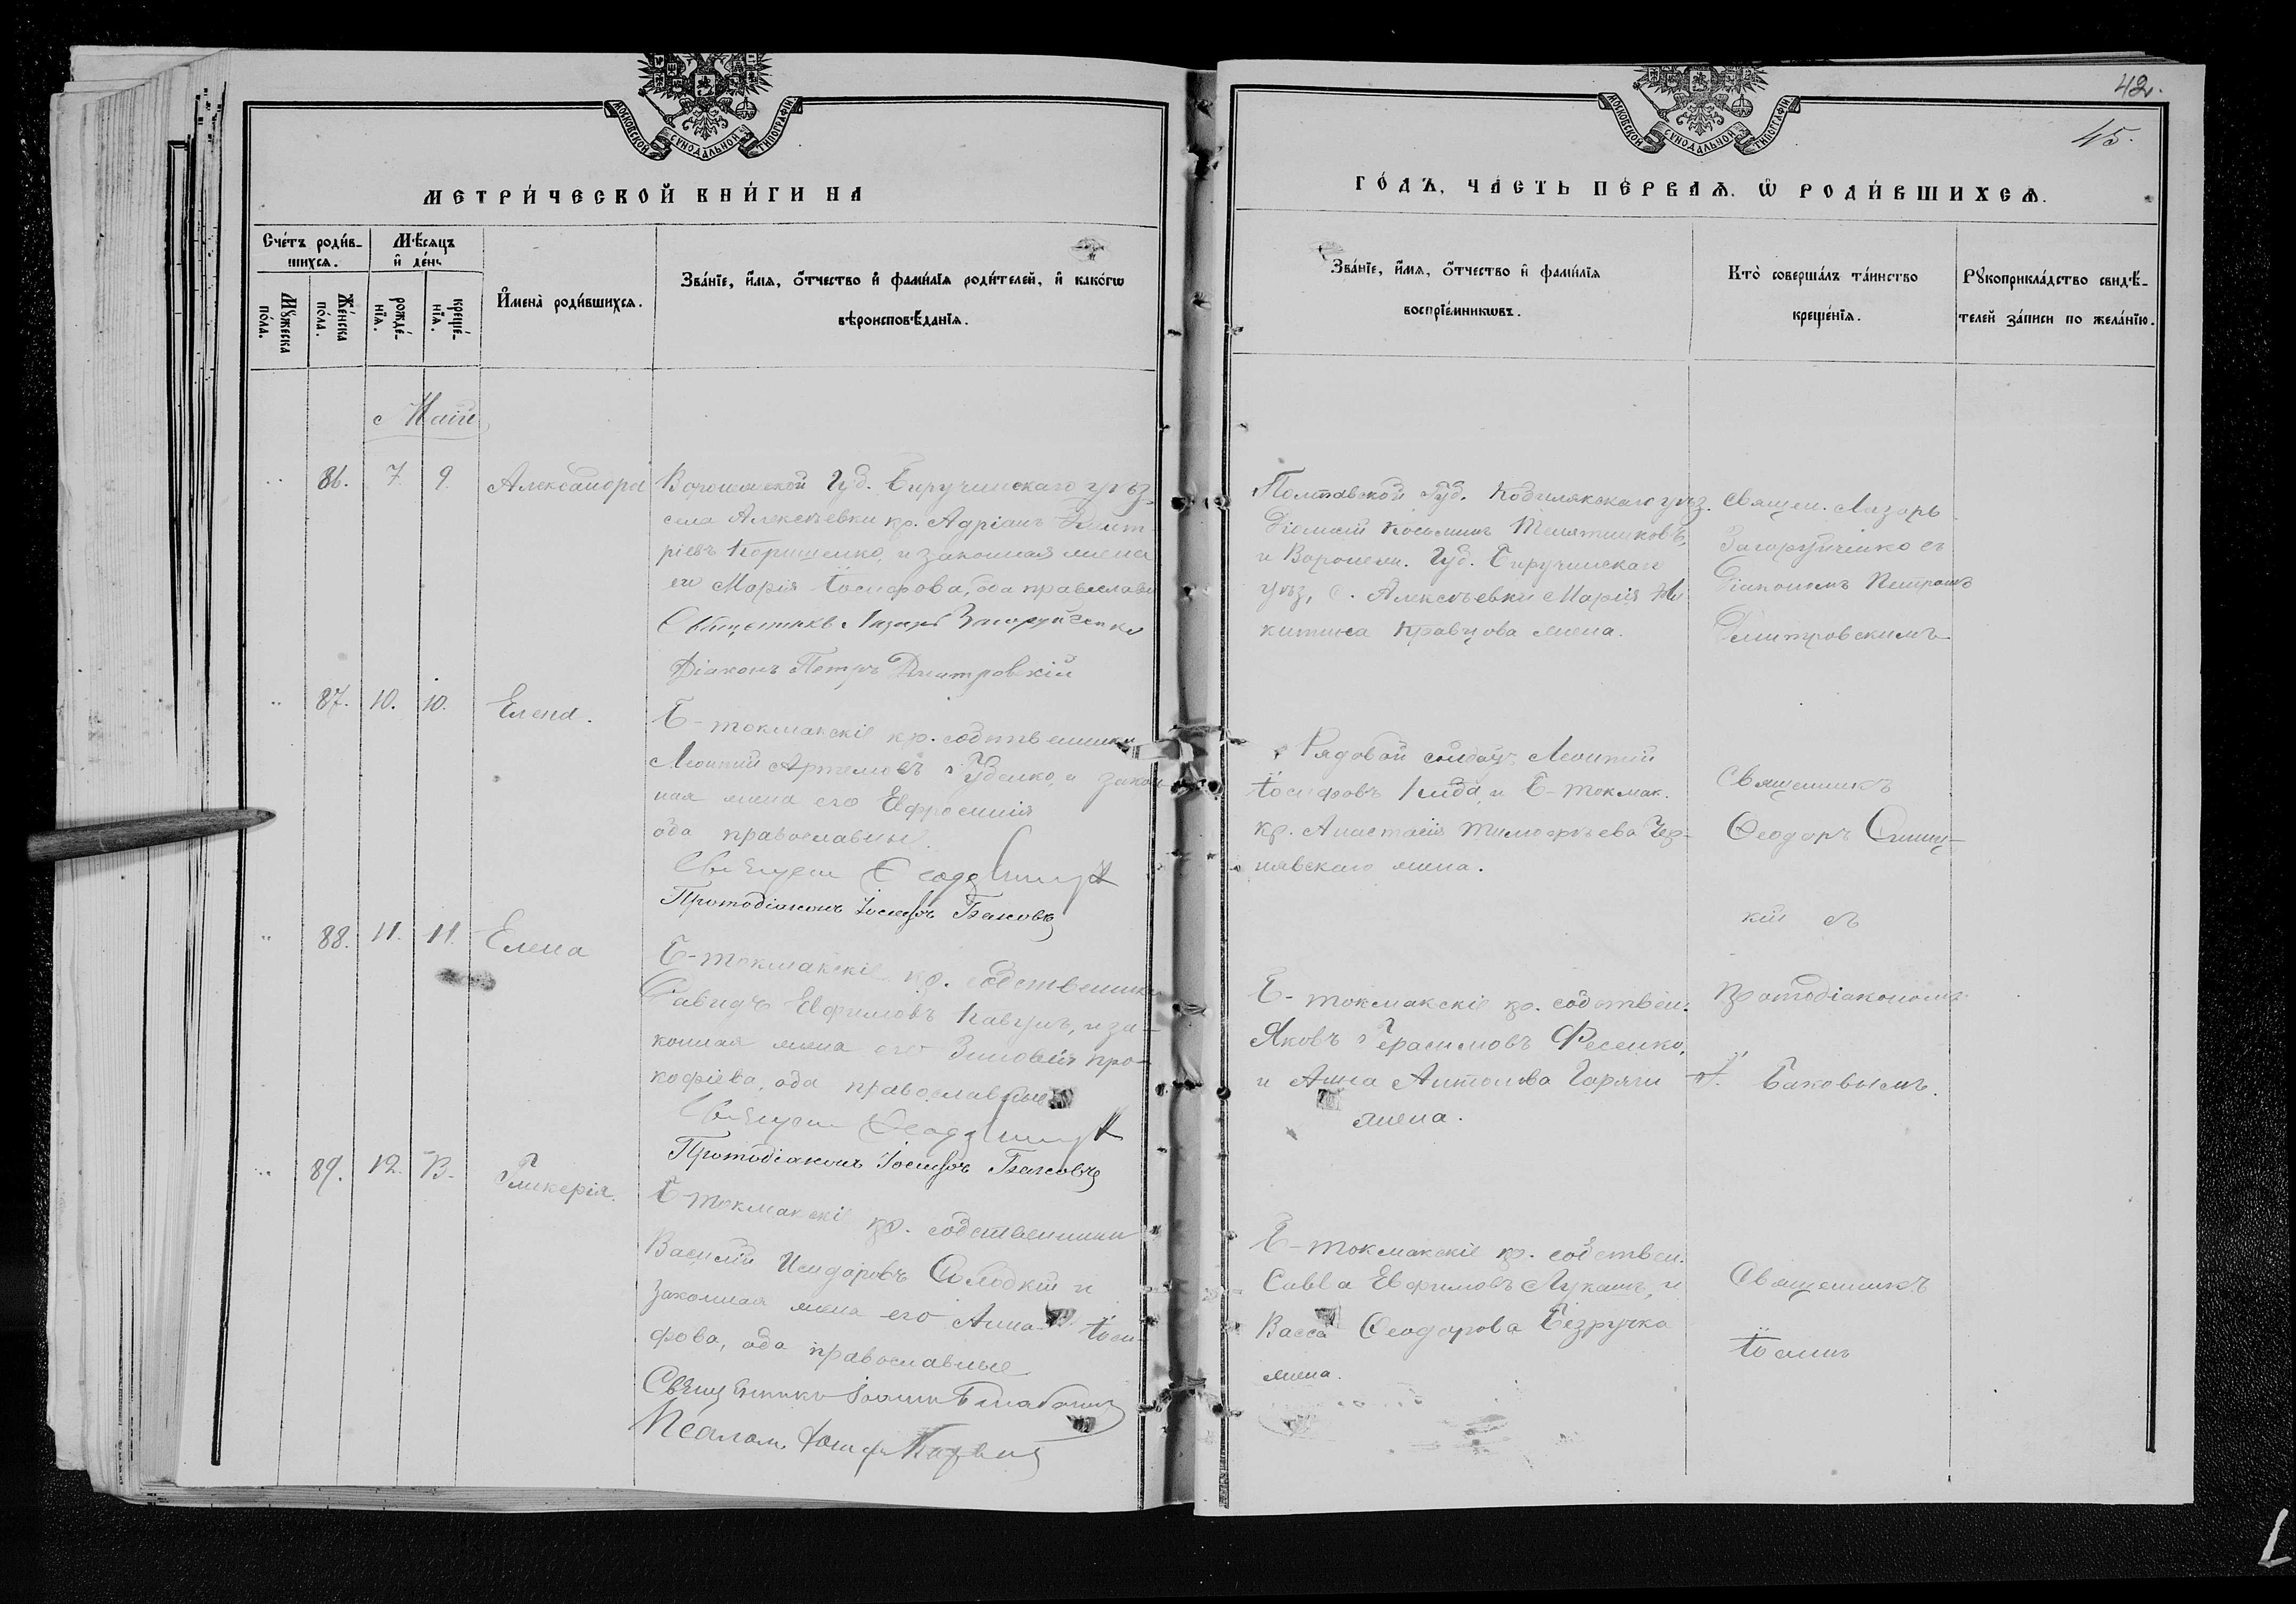 МОСКОВСКОЙ СУНОДАЛЬНОЙ ТИПОГРАФІИ
МЕТРИ́ЧЕСКОЙ КНИ́ГИ НА
Сче́тъ роди́в-
шихся.
Мѣ́сяцъ
и҆ де́нь
Мꙋжеска
по́ла.
Же́нска
по́ла.
рожде́-
нїя.
креще́-
нїя.
И҆мена̀ роди́вшихся.
Зва́нїе, и҆́мя, ѻ҆́тчество и҆ фами́лїя роди́телей, и҆ како́гѡ
вѣроисповѣ́данїя.
Май
86. 7. 9. Александра
Воронежской Губ. Бирученскаго уѣз.
села Алексѣевки кр. Адріанъ Димит
ріевъ и законная жена
его Марія Іосифова, оба правосла
Священникъ Лазарь Загоруйченко
Діаконъ Петръ Дмитровскій
87. 10. 10. Елена.
Б-токмакскіе кр. собственники
Леонтій Артемовъ Губенко, и закон
ная жена его Евфросинія
оба православны.
Священ Ѳеод
Протодіаконъ Іосифъ Баковъ
88. 11. 11. Елена
Б-токмакскіе кр. собственник
Давидъ Евфимовъ Кавунъ, и за-
конная жена его Зиновія Про-
кофіева, оба православные
Священ Ѳеод
Протодіаконъ Іосифъ Баковъ
89. 12. 13. Гликерія.
Б-токмакскі кр. собственники
Василій Исидоровъ Солодкій и
законная жена его Анна Іоси
фова, оба православные
Священникъ Іоаннъ
Псалом.
42.
45.
МОСКОВСКОЙ СУНОДАЛЬНОЙ ТИПОГРАФІИ
ГО́ДЪ, ЧА́СТЬ ПЕ́РВАЯ, Ѡ҆ РОДИ́ВШИХСЯ.
Зва́нїе, и҆́мя, ѻ҆́тчество и҆ фами́лїя
воспрїе́мникѡвъ.
Кто̀ соверша́лъ та́инство
креще́нїя.
Рꙋкоприкла́дство свидѣ́-
телей за́писи по жела́нїю.
Полтавской Губ. Кобилякскаго уѣз.
Косьминъ
и Воронеж. Губ. Бирученскаго
уѣз, с. Алексѣевки Марія Ни
китина Кравцова жена.
Священ. Лазарь
Загоруйченко съ
Діакономъ Петромъ
Димитровскимъ
Рядовой солдатъ Леонтій
Іосифовъ и Б-токмак.
кр. Анастасія Тимофѣева Чер-
нявскаго жена.
Священникъ
Ѳеодоръ
кій съ
Протодіакономъ
І. Баковымъ.
Б-токмакскіе кр. собствен.
Яковъ Герасимовъ Фесенко,
и Анна Антонова Гаряги
жена.
Б-токмакскіе кр. собствен.
Савва Евфимовъ Лукашъ, и
Васса Ѳеодорова Безручка
жена.
Священникъ
Іоаннъ